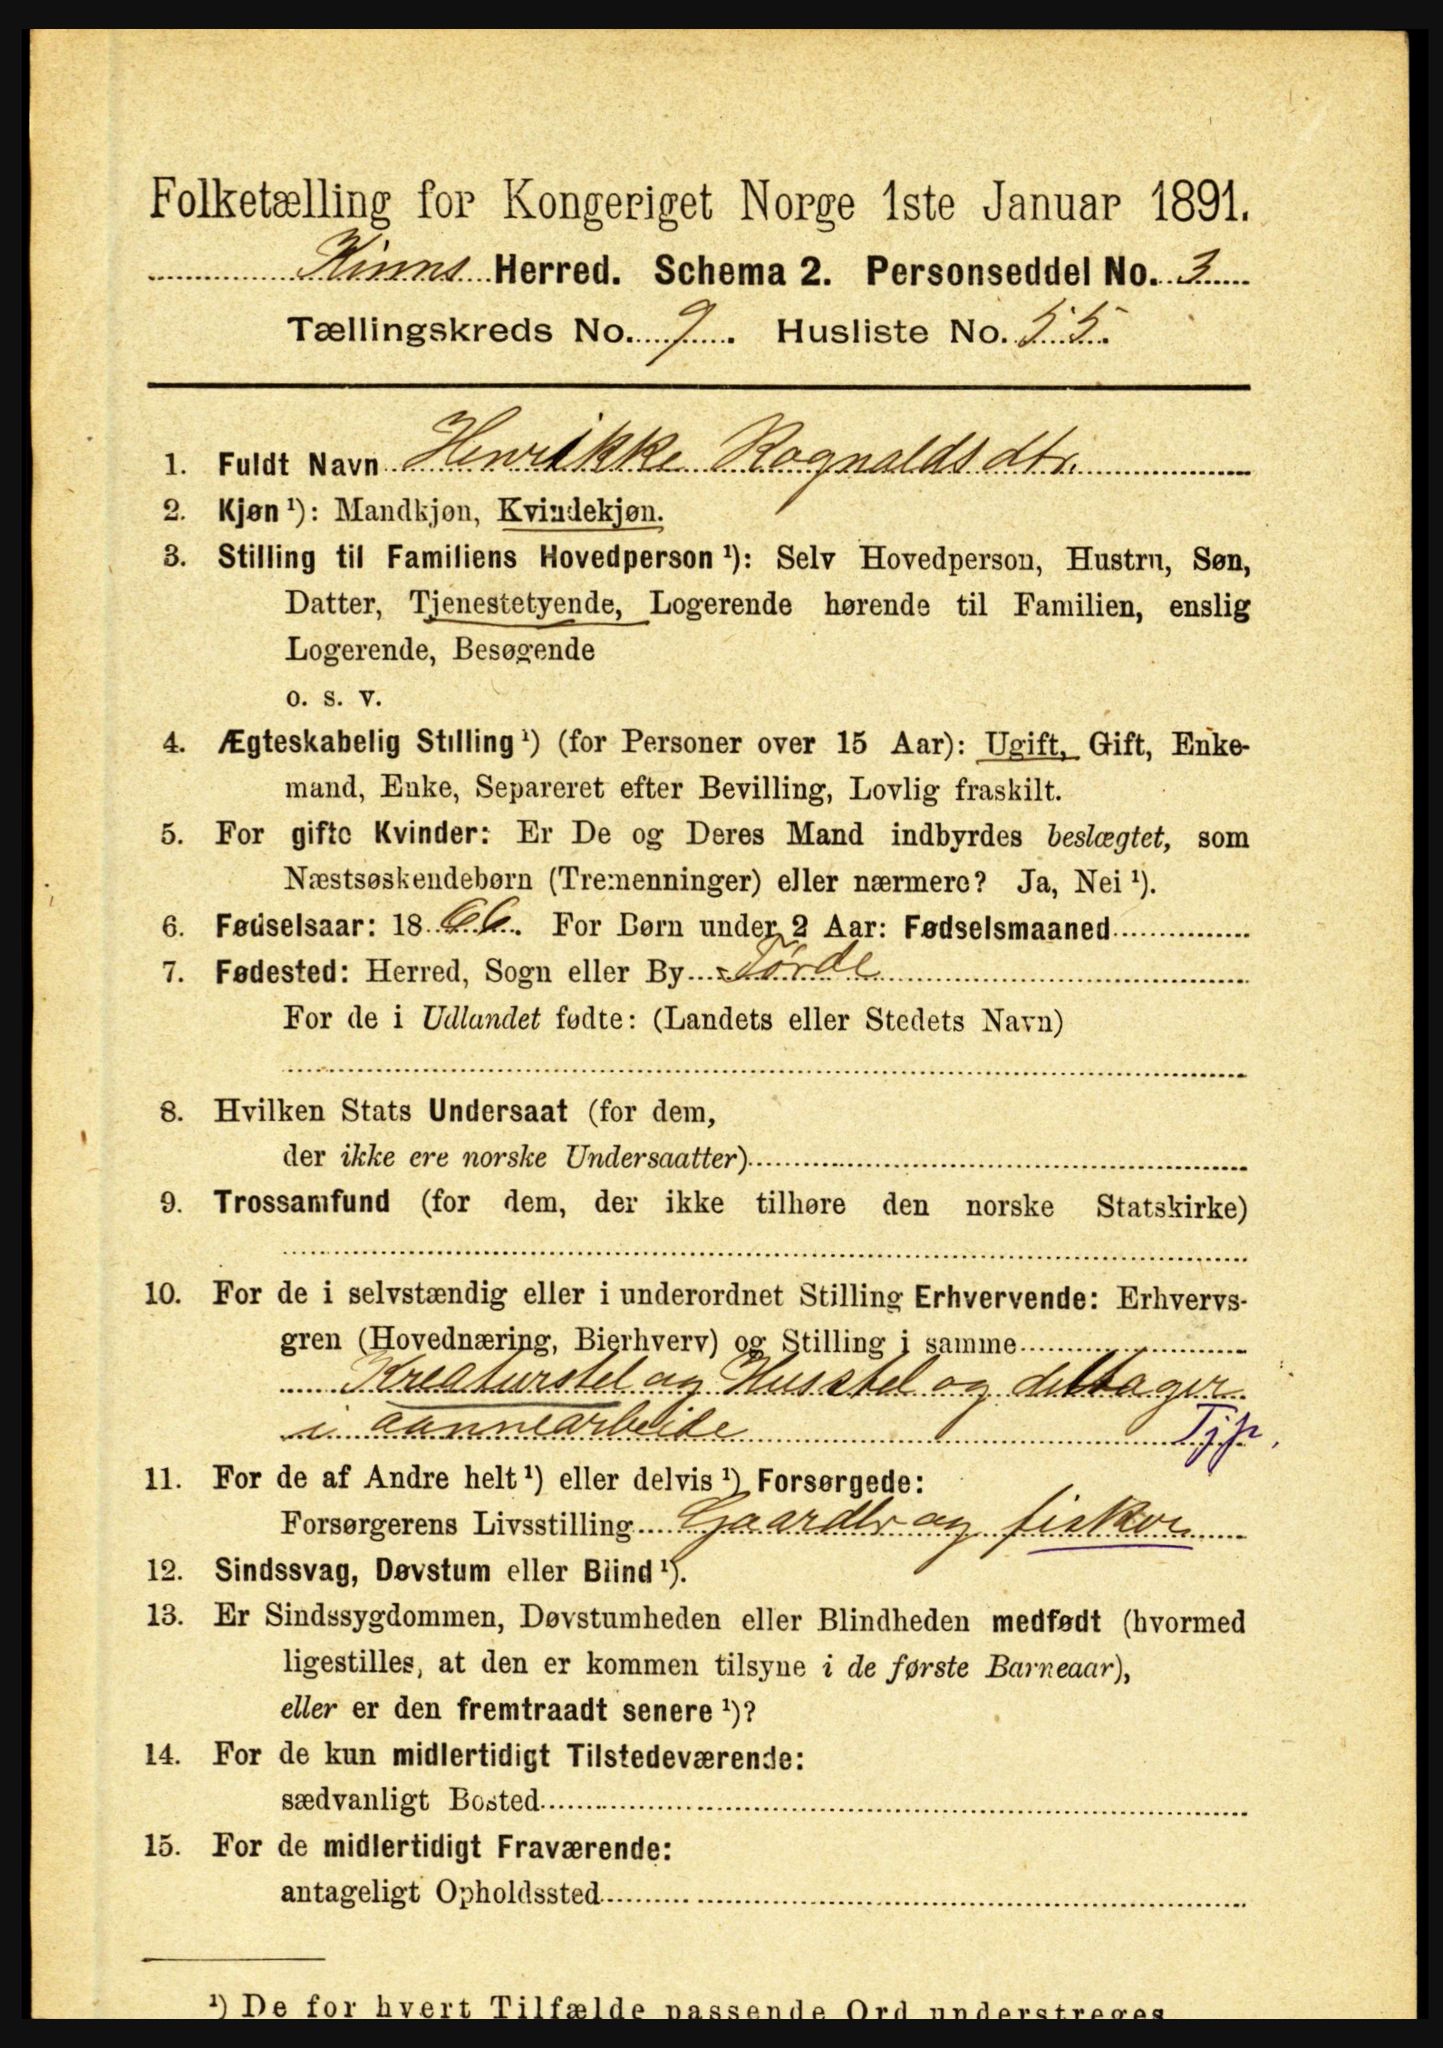 Folketælling for Kongeriget Norge 1ste Januar 1891.
Kinns Herred. Schema 2. Personseddel No. 3
Tællingskreds No. 9. Husliste No. 55.
1. Fuldt Navn Henrikke Rognaldsdtr.
2. Kjøn ¹): Mandkjøn, Kvindekjøn.
3. Stilling til Familiens Hovedperson ¹): Selv Hovedperson, Hustru, Søn,
Datter, Tjenestetyende, Logerende hørende til Familien, enslig
Logerende, Besøgende
o. s. v.
4. Ægteskabelig Stilling ¹) (for Personer over 15 Aar): Ugift, Gift, Enke-
mand, Enke, Separeret efter Bevilling, Lovlig fraskilt.
5. For gifte Kvinder: Er De og Deres Mand indbyrdes beslægtet, som
Næstsøskendebørn (Tremenninger) eller nærmere? Ja, Nei ¹).
6. Fødselsaar: 1866. For Børn under 2 Aar: Fødselsmaaned
7. Fødested: Herred, Sogn eller By Førde
For de i Udlandet fødte: (Landets eller Stedets Navn)
8. Hvilken Stats Undersaat (for dem,
der ikke ere norske Undersaatter)
9. Trossamfund (for dem, der ikke tilhøre den norske Statskirke)
10. For de i selvstændig eller i underordnet Stilling Erhvervende: Erhvervs-
gren (Hovednæring, Bierhverv) og Stilling i samme
Kreaturstel og Husstel og deltager
i aannearbeide Tjp.
11. For de af Andre helt ¹) eller delvis ¹) Forsørgede:
Forsørgerens Livsstilling Gaardbr og fisker
12. Sindssvag, Døvstum eller Blind ¹).
13. Er Sindssygdommen, Døvstumheden eller Blindheden medfødt (hvormed
ligestilles, at den er kommen tilsyne i de første Barneaar),
eller er den fremtraadt senere ¹)?
14. For de kun midlertidigt Tilstedeværende:
sædvanligt Bosted
15. For de midlertidigt Fraværende:
antageligt Opholdssted
¹) De for hvert Tilfælde passende Ord understreges